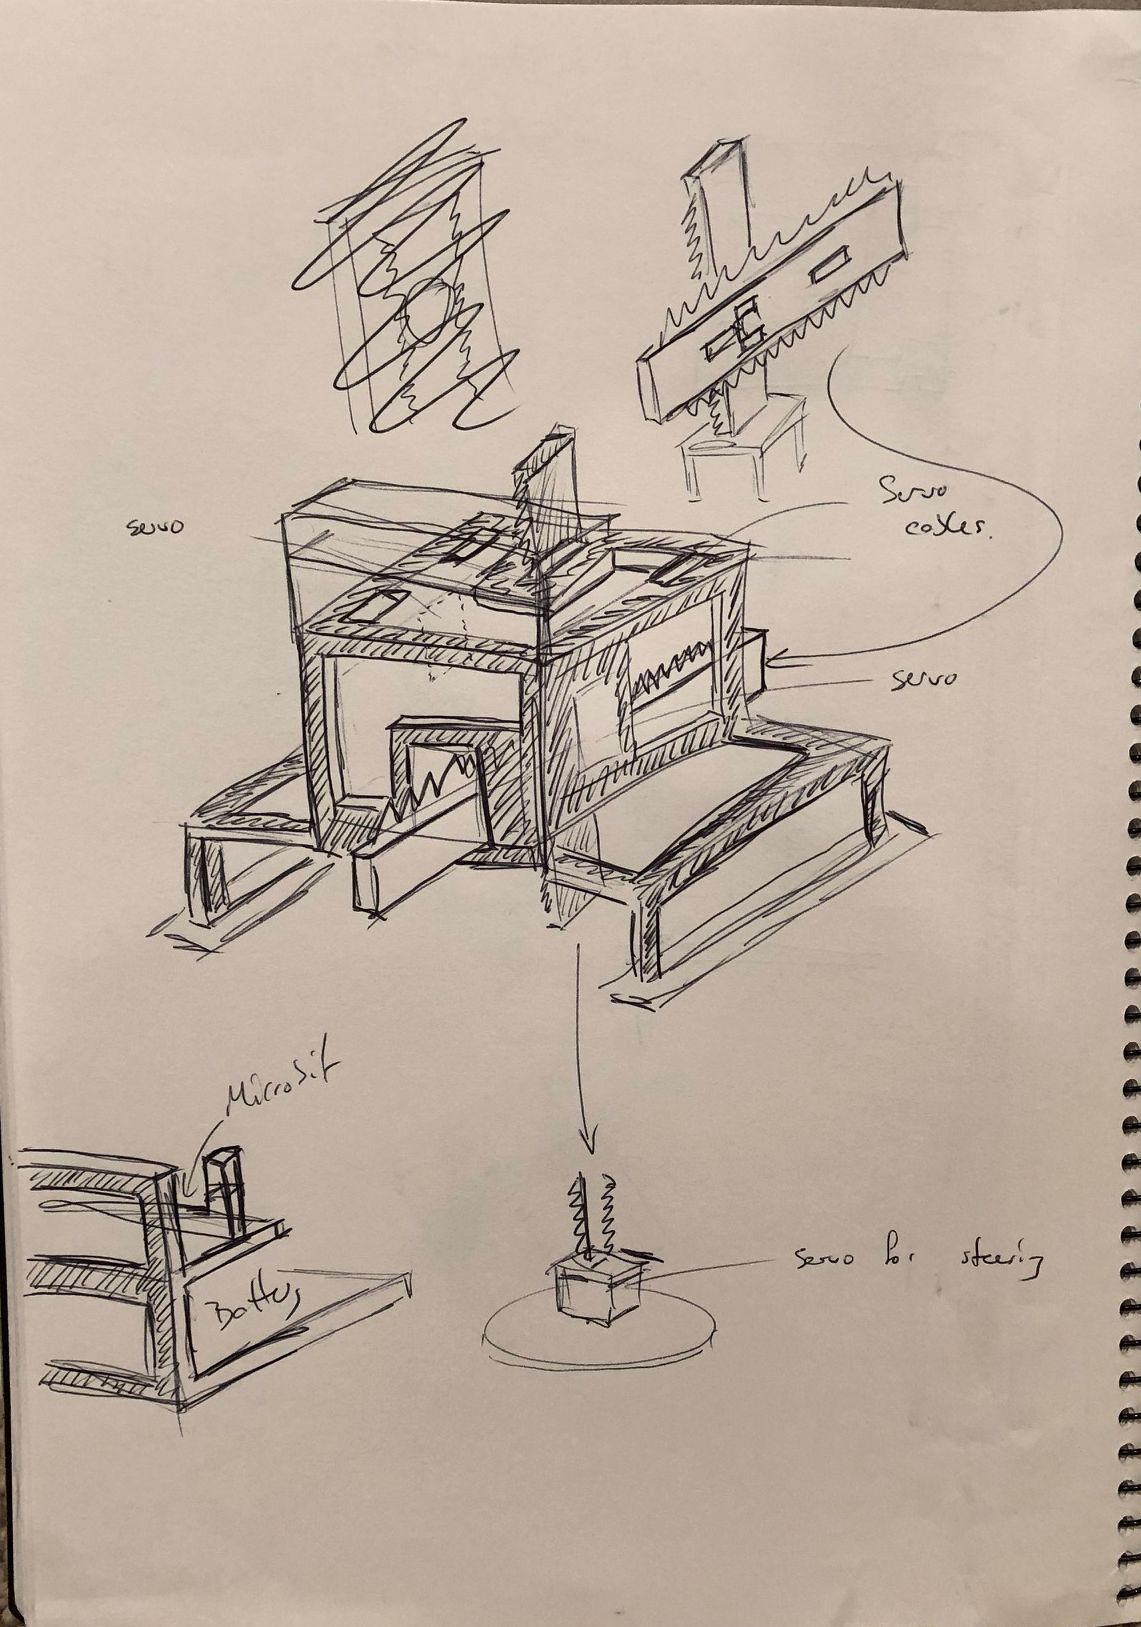 servo
Servo
cables.
servo
MicroBit
Battery
servo for steering